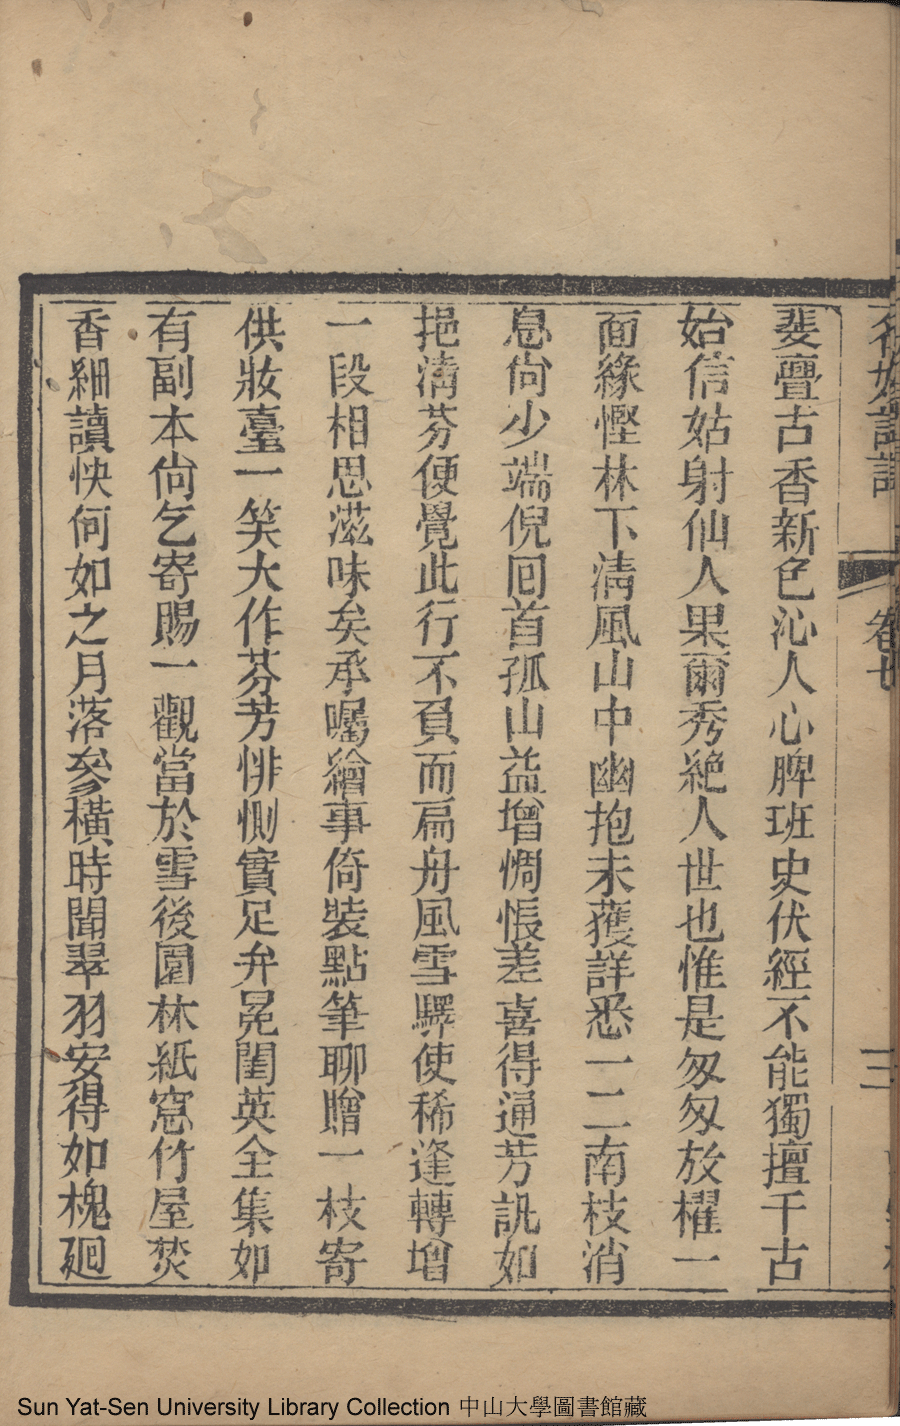 名媛詩話 卷七 三
斐亹古香新色沁人心脾班史伏經不能獨擅千古
始信姑射仙人果爾秀絶人世也惟是匆匆放櫂一
面緣慳林下淸風山中幽抱未獲詳悉一二南枝消
息尙少端倪囘首孤山益增惆悵差喜得通芳訊如
挹淸芬便覺此行不負而扁舟風雪驛使稀逢轉增
一段相思滋味矣承囑繪事倚裝點筆聊贈一枝寄
供妝臺一笑大作芬芳悱惻實足弁冕閨英全集如
有副本尙乞寄賜一觀當於雪後園林紙窻竹屋焚
香細讀快何如之月落參橫時聞翠羽安得如槐廻
Sun Yat-Sen University Library Collection 中山大學圖書館藏